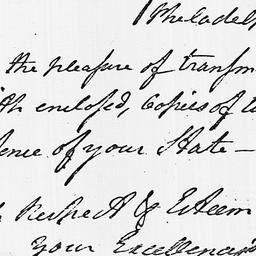 Philadelp
the pleasure of transm
th enclosed, Copies of t
ence of your State —
Respect & Esteem
Your Excellency's